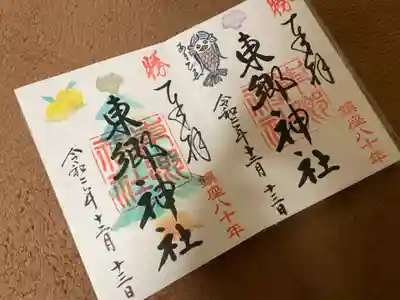 勝
奉拝
鎮座八十年
東郷神社
令和二年十二月十三日
あまびえ
勝
奉拝
鎮座八十年
東郷神社
令和二年十二月十三日